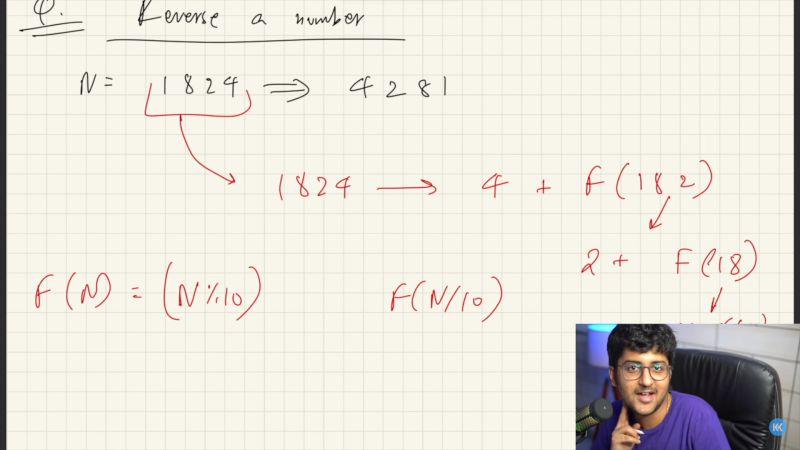 Q. Reverse a number
N = 1824 ⟹ 4281
1824 → 4 + F(182)
2 + F(18)
F(N) = (N%10) F(N/10)
K